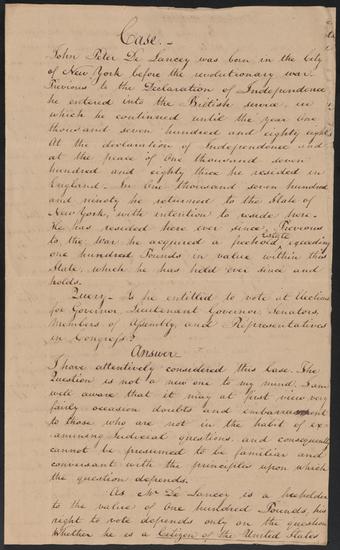 Case. -
John Peter De Lancey was born in the City
of New York before the revolutionary war.
Previous to the Declaration of Independence
he entered into the British service, in
which he continued until the year One
thousand seven hundred and eighty eight
At the declaration of Independence and
at the peace of One thousand seven
hundred and eighty three he resided in
England. - In One thousand seven hundred
and ninety he returned to the State of
New York, with intention to reside here.
He has resided here ever since. Previous
to the War he acquired a freehold Estate exceeding
one hundred Pounds in value within this
State, which he has held ever since and
holds.
Query - Is he entitled to vote at Elections
for Governor, Lieutenant Governor, Senators,
Members of Assembly, and Representatives
in Congress?
Answer
I have attentively considered this Case. The
Question is not a new one to my mind. I am
well aware that it may at first view very
fairly occasion doubts and embarrassment
to those who are not in the habit of ex-
amining Judicial questions, and consequently
cannot be presumed to be familiar and
conversant with the principles upon which
the question depends.
As Mr De Lancey is a freeholder
to the value of One hundred Pounds, his
right to vote depends only on the question
Whether he is a Citizen of the United States